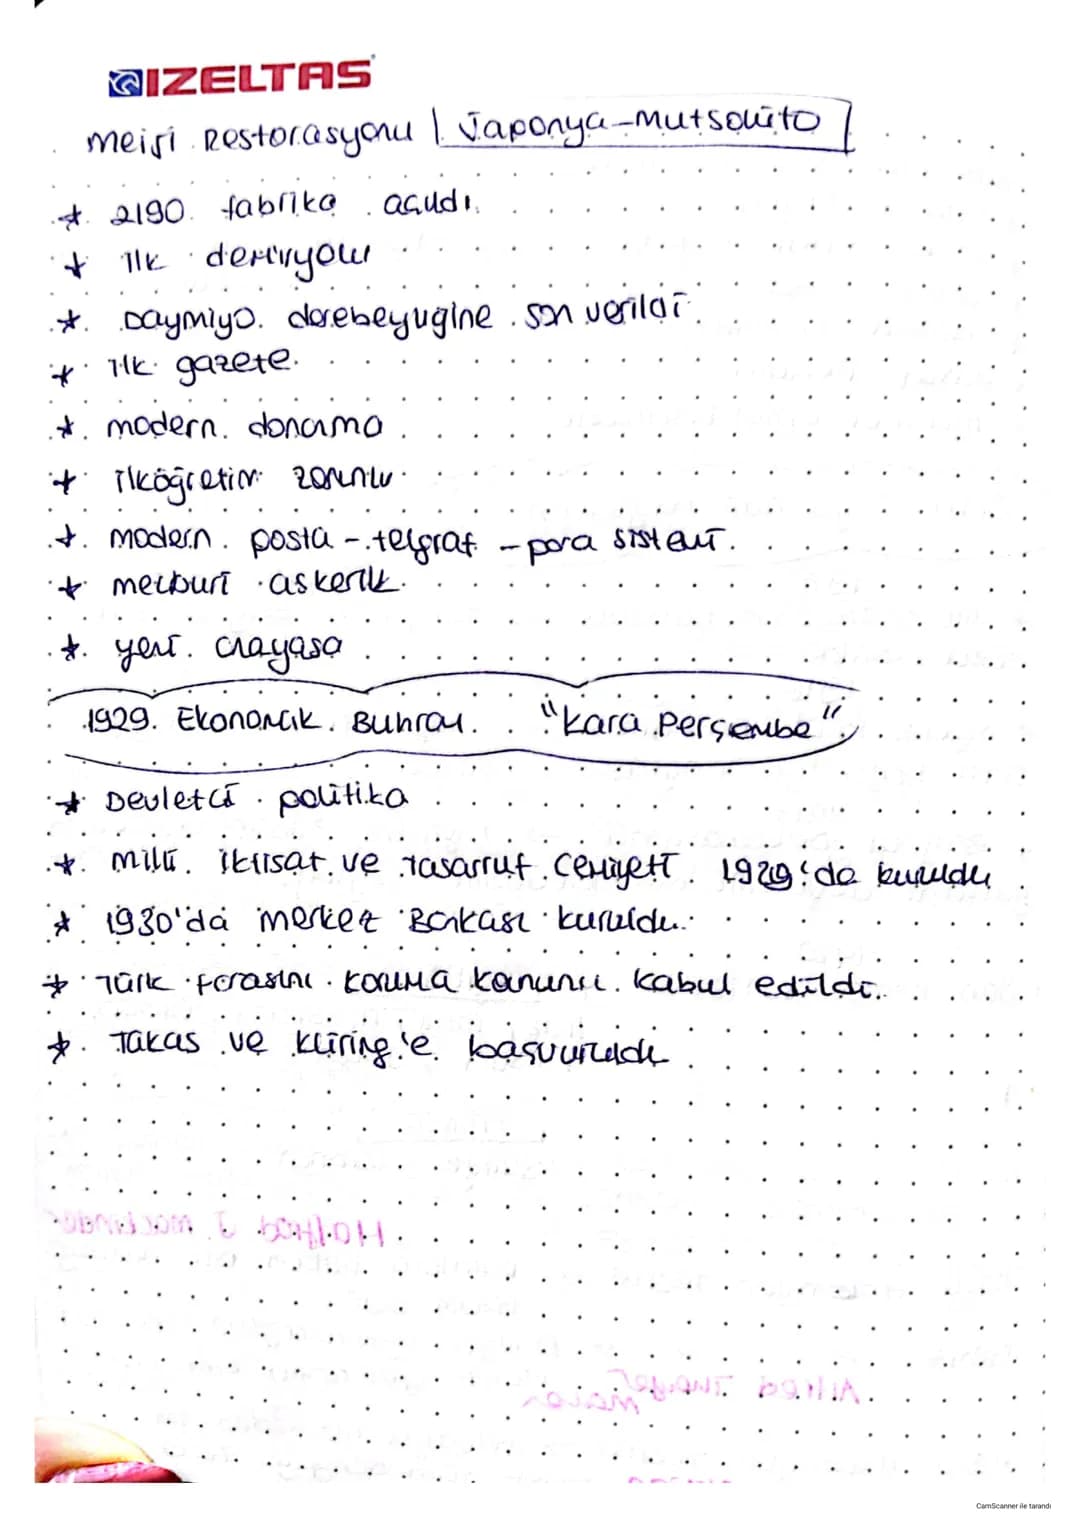 IZELTAS
Meiji Restorasyonu | Japonya-Mutsohito
* 2190 fabrika açıldı.
* İlk demiryolu
* Daymiyo derebeyliğine son verildi.
* İlk gazete
* modern donanma
* ilköğretim zorunlu
* modern posta - telgraf - para sistemi.
* mecburi askerlik
* yeni anayasa
1929 Ekonomik Buhranı "Kara Perşembe"
* Devletçi politika
* Milli iktisat ve Tasarruf Cemiyeti 1929'da kuruldu
* 1930'da merkez Bankası kuruldu.
* Türk Parasını koruma kanunu kabul edildi.
* Takas ve kliring'e başvuruldu
Halford J. mackinder
Alfred Thayer
mahan
CamScanner ile tarandı